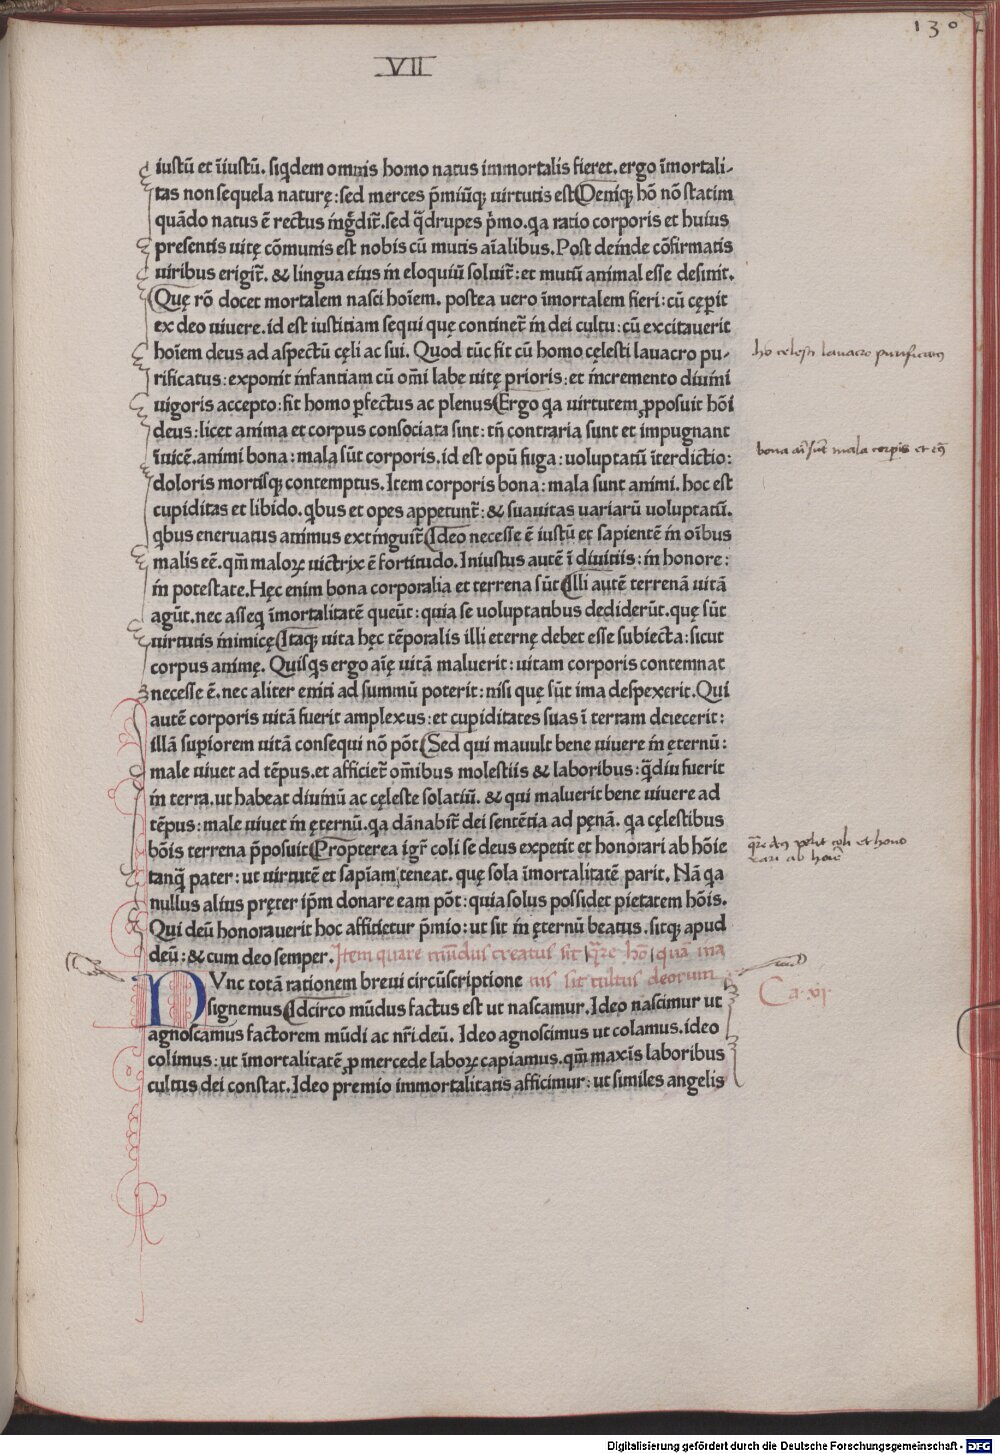 130
VII
iustū et īiustū. siqdem omnis homo natus immortalis fieret. ergo īmortali-
tas non sequela naturę: sed merces p̄miūq; uirtutis est Deniq; hō nō statim
quādo natus ē rectus ingdit̄. sed q̄drupes p̄mo. qa ratio corporis et huius
presentis uitę cōmunis est nobis cū mutis aīalibus. Post deinde cōfirmatis
uiribus erigit̄. & lingua eius in eloquiū soluit̄: et mutū animal esse desinit.
Quę rō docet mortalem nasci hoīem. postea uero īmortalem fieri: cū cęperit
ex deo uiuere. id est iustitiam sequi quę continet̄ in dei cultu: cū excitauerit
hoīem deus ad aspectū cęli ac sui. Quod tūc fit cū homo cęlesti lauacro pu-
rificatus: exponit infantiam cū omī labe uitę prioris: et incremento diuini
uigoris accepto: fit homo pfectus ac plenus Ergo qa uirtutem ꝓposuit hōi
deus: licet anima et corpus consociata sint: tn̄ contraria sunt et impugnant
īuicē. animi bona: mala sūt corporis. id est opū fuga: uoluptatū īterdictio:
doloris mortisq; contemptus. Item corporis bona: mala sunt animi. hoc est
cupiditas et libido. qbus et opes appetunt̄: & suauitas uariarū uoluptatū.
qbus eneruatus animus extinguit̄ Ideo necesse ē iustū et sapientē in oībus
malis eē. qm̄ maloꝝ uictrix ē fortitudo. Iniustus autē ī diuitiis: in honore:
in potestate. Hęc enim bona corporalia et terrena sūt Illi autē terrenā uitā
agūt. nec asseq īmortalitatē queūt: quia se uoluptatibus dediderūt. quę sūt
uirtutis inimicę Itaq; uita hęc tēporalis illi eternę debet esse subiecta: sicut
corpus animę. Quisqs ergo aīę uitā maluerit: uitam corporis contemnat
necesse ē. nec aliter eniti ad summū poterit: nisi quę sūt ima despexerit. Qui
autē corporis uitā fuerit amplexus: et cupiditates suas ī terram deiecerit:
illā supiorem uitā consequi nō pōt Sed qui mauult bene uiuere in ęternū:
male uiuet ad tēpus. et afficiet̄ om̄ibus molestiis & laboribus: q̄diu fuerit
in terra. ut habeat diuinū ac cęleste solatiū. & qui maluerit bene uiuere ad
tēpus: male uiuet in ęternū. qa dānabit̄ dei sentētia ad pęnā. qa cęlestibus
bōis terrena p̄posuit Propterea igr̄ coli se deus expetit et honorari ab hōie
tanq̄ pater: ut uirtutē et sapīam teneat. quę sola īmortalitatē parit. Nā qa
nullus alius pręter ip̄m donare eam pōt: quia solus possidet pietatem hōis.
Qui deū honorauerit hoc afficietur p̄mio: ut sit in ęternū beatus. sitq; apud
deū: & cum deo semper. Item quare mūdus creatus sit q̄re hō quā ina
NVnc totā rationem breui circūscriptione nis sit cultus deorum
signemus Idcirco mūdus factus est ut nascamur. Ideo nascimur ut
agnoscamus factorem mūdi ac nr̄i deū. Ideo agnoscimus ut colamus. ideo
colimus: ut īmortalitatē ꝓ mercede laboꝝ capiamus. qm̄ maxīs laboribus
cultus dei constat. Ideo premio immortalitatis afficimur: ut similes angelis
ho celesti lauacro purificatus
bona aī sūt mala corpis et eꝯ
q̄re deꝯ petit coli et hono
rari ab hoīe
Ca. vi.
Digitalisierung gefördert durch die Deutsche Forschungsgemeinschaft - DFG